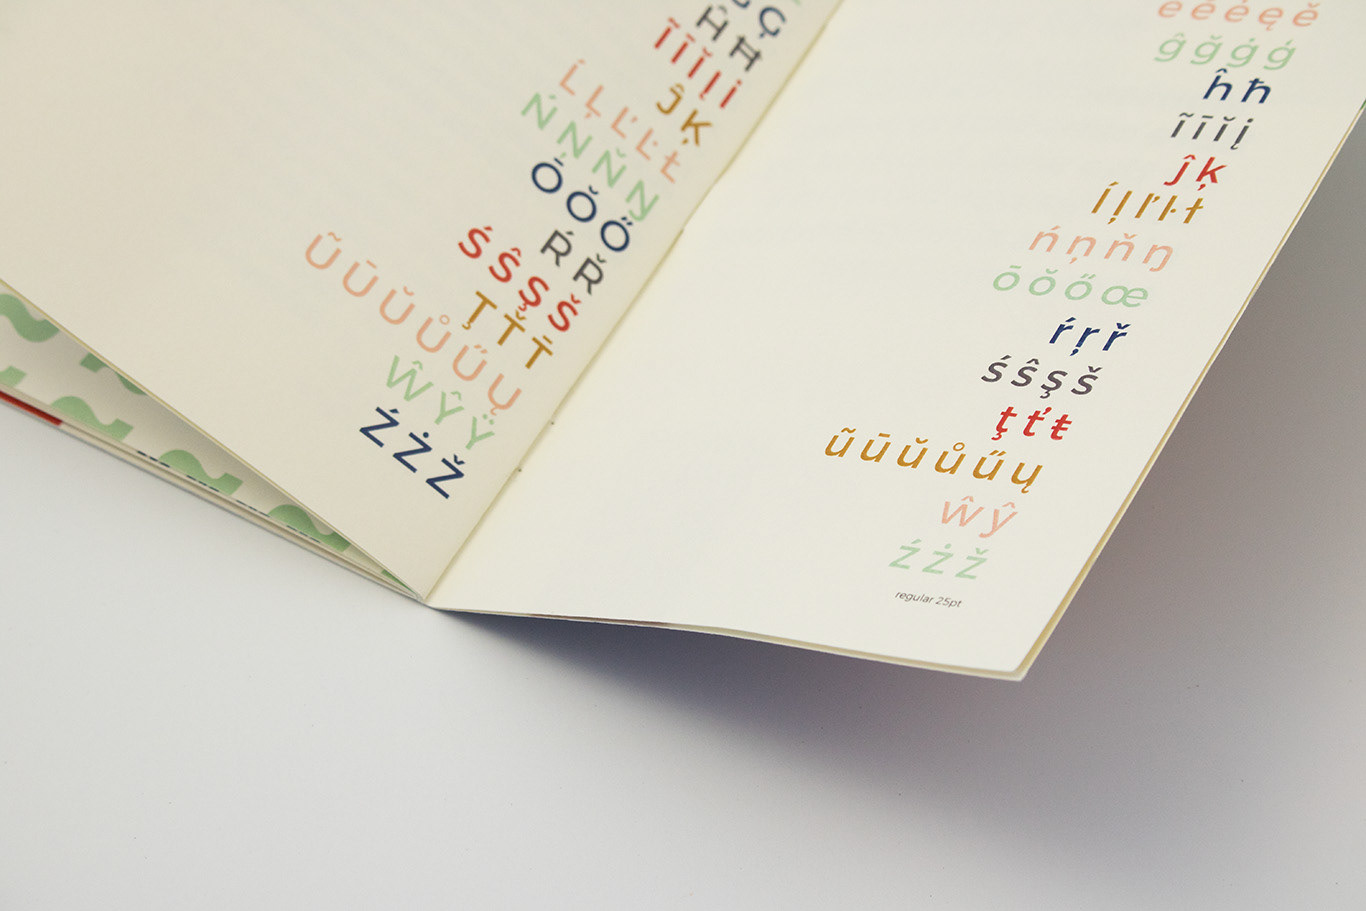 Ģ
Ĥ Ħ
Ĩ Ī Ĭ Į İ
Ĵ Ķ
Ĺ Ļ Ľ Ŀ Ł
Ń Ņ Ň Ŋ
Ō Ŏ Ő
Ŕ Ř
Ś Ŝ Ş Š
Ţ Ť Ŧ
Ũ Ū Ŭ Ů Ű Ų
Ŵ Ŷ Ÿ
Ź Ż Ž
ē ĕ ė ę ě
ĝ ğ ġ ģ
ĥ ħ
ĩ ī ĭ į
ĵ ķ
ĺ ļ ľ ŀ ł
ń ņ ň ŋ
ō ŏ ő œ
ŕ ŗ ř
ś ŝ ş š
ţ ť ŧ
ũ ū ŭ ů ű ų
ŵ ŷ
ź ż ž
regular 25pt